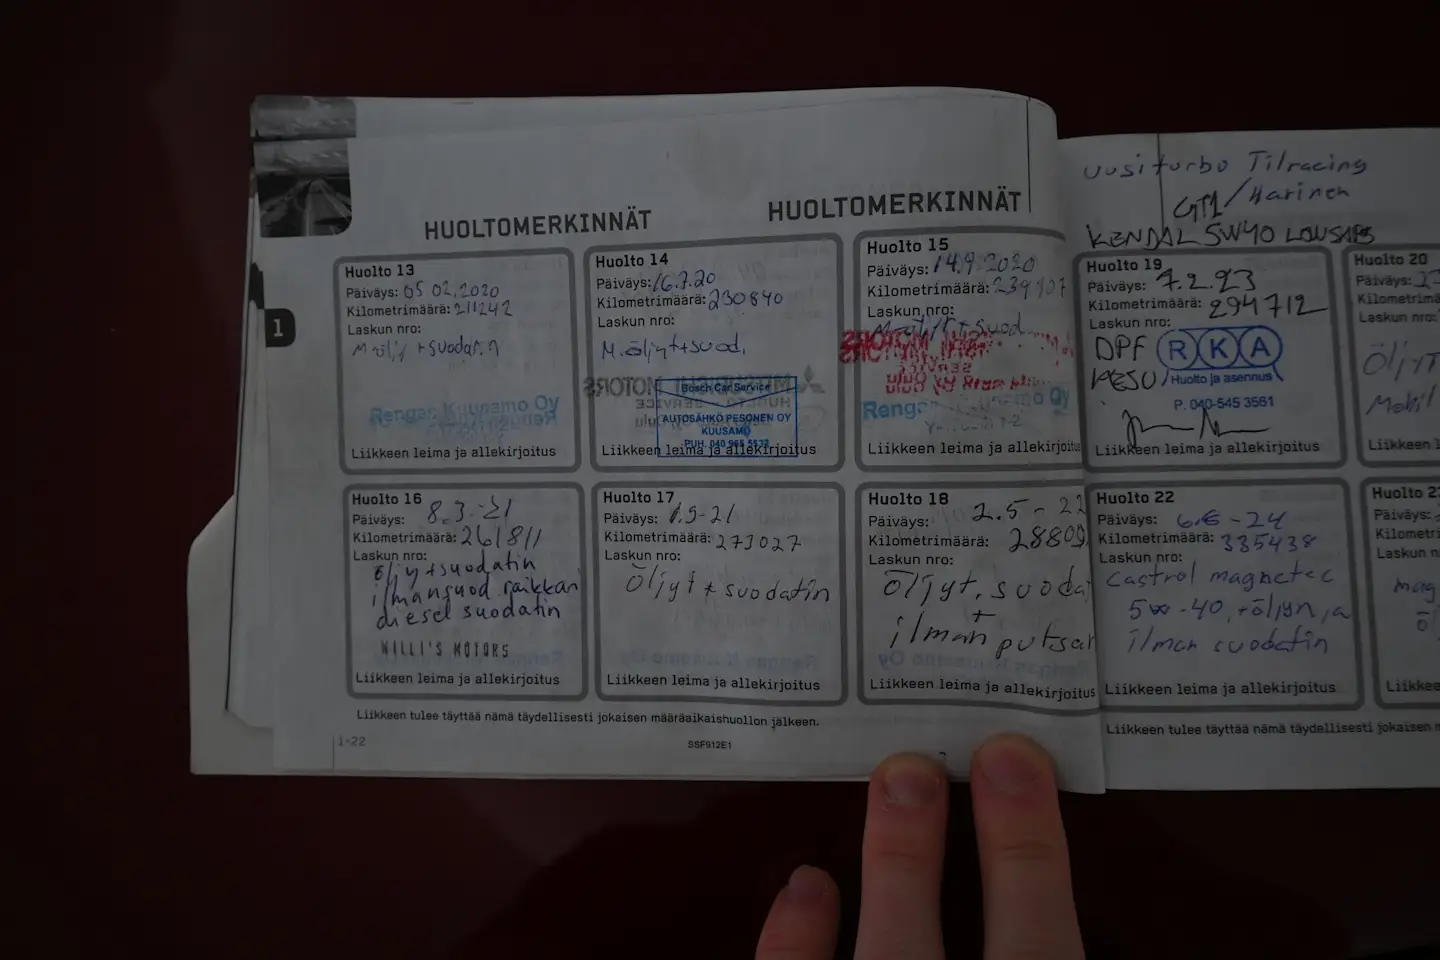 HUOLTOMERKINNÄT
HUOLTOMERKINNÄT
uusi turbo Tilracing
GT1/Harinen
KENDAL 5W40 LOWSAPS
1
Huolto 13
Päiväys: 05 02.2020
Kilometrimäärä: 211242
Laskun nro:
M-öljy + suodatin
Rengas Kuusamo Oy
Liikkeen leima ja allekirjoitus
Huolto 14
Päiväys: 16.7.20
Kilometrimäärä: 230840
Laskun nro:
M.öljyt+suod.
Bosch Car Service
AUTOSÄHKÖ PESONEN OY
KUUSAMO
PUH. 040 965 5532
Liikkeen leima ja allekirjoitus
Huolto 15
Päiväys: 14.9.2020
Kilometrimäärä: 239107
Laskun nro:
M-öljyt + suod
Rengas Kuusamo Oy
Liikkeen leima ja allekirjoitus
Huolto 19
Päiväys: 7.2.23
Kilometrimäärä: 294712
Laskun nro:
DPF
PESU
RKA
Huolto ja asennus
P. 040-545 3561
Liikkeen leima ja allekirjoitus
Huolto 20
Päiväys:
Kilometrimä
Laskun nro:
Öljyt
Mobil
Liikkeen l
Huolto 16
Päiväys: 8.3.-21
Kilometrimäärä: 261811
Laskun nro:
öljy+suodatin
ilmansuod raikkari
diesel suodatin
WILLI'S MOTORS
Liikkeen leima ja allekirjoitus
Huolto 17
Päiväys: 1.9-21
Kilometrimäärä: 273027
Laskun nro:
Öljyt + suodatin
Liikkeen leima ja allekirjoitus
Huolto 18
Päiväys: 2.5-22
Kilometrimäärä: 28809
Laskun nro:
Öljyt, suoda
+
ilman putsar
Liikkeen leima ja allekirjoitus
Huolto 22
Päiväys: 6.6-24
Kilometrimäärä: 335438
Laskun nro:
Castrol magnetec
5w-40, +öljyn ja
ilman suodatin
Liikkeen leima ja allekirjoitus
Päiväys:
Kilometri
Laskun n
mag
Liikkee
Liikkeen tulee täyttää nämä täydellisesti jokaisen määräaikaishuollon jälkeen.
Liikkeen tulee täyttää nämä täydellisesti jokaisen m
1-22
SSF912E1